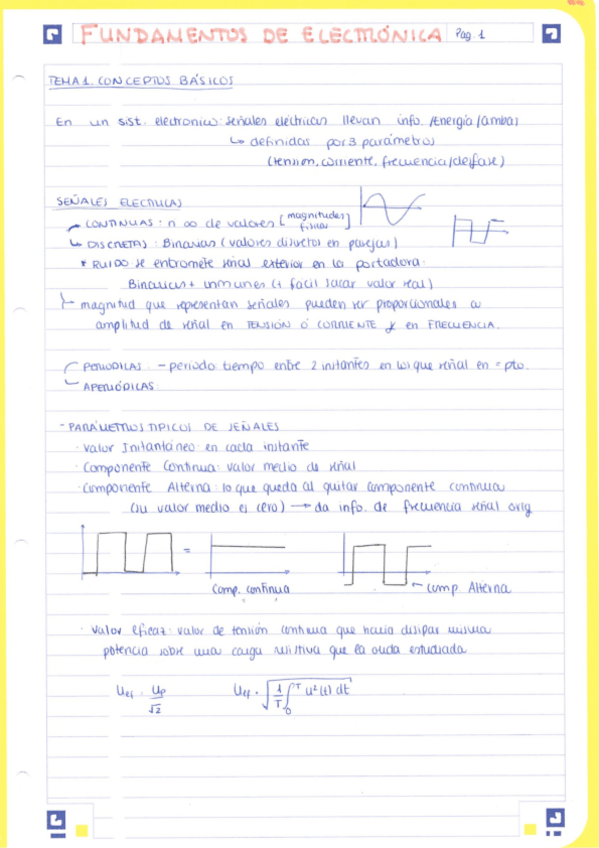 FUNDAMENTOS DE ELECTRÓNICA Pág. 1
TEMA 1. CONCEPTOS BÁSICOS
En un sist. electronico: señales eléctricas llevan info. /Energía /ambas
↳ definidas por 3 parámetros
(tension, corriente, frecuencia/desfase)
SEÑALES ELECTRICAS
CONTINUAS: n ∞ de valores [magnitudes físicas]
↳ DISCRETAS: Binarias (valores discretos en parejas)
* RUIDO se entromete señal exterior en la portadora.
Binarias + inmunes (+ facil sacar valor real)
↳ magnitud que representan señales pueden ser proporcionales a
amplitud de señal en TENSIÓN Ó CORRIENTE y en FRECUENCIA.
PERIODICAS: - periodo: tiempo entre 2 instantes en los que señal en = pto.
APERIÓDICAS:
- PARÁMETROS TIPICOS DE SEÑALES
· Valor Instantáneo: en cada instante
· Componente Continua: valor medio de señal
· Componente Alterna: lo que queda al quitar componente continua
(su valor medio es cero) → da info. de frecuencia señal orig.
=
Comp. continua
← comp Alterna
· Valor eficaz: valor de tensión continua que haria disipar misma
potencia sobre una carga resistiva que la onda estudiada
Uef = Up/√2 Uef = √(1/T ∫₀ᵀ u²(t) dt)